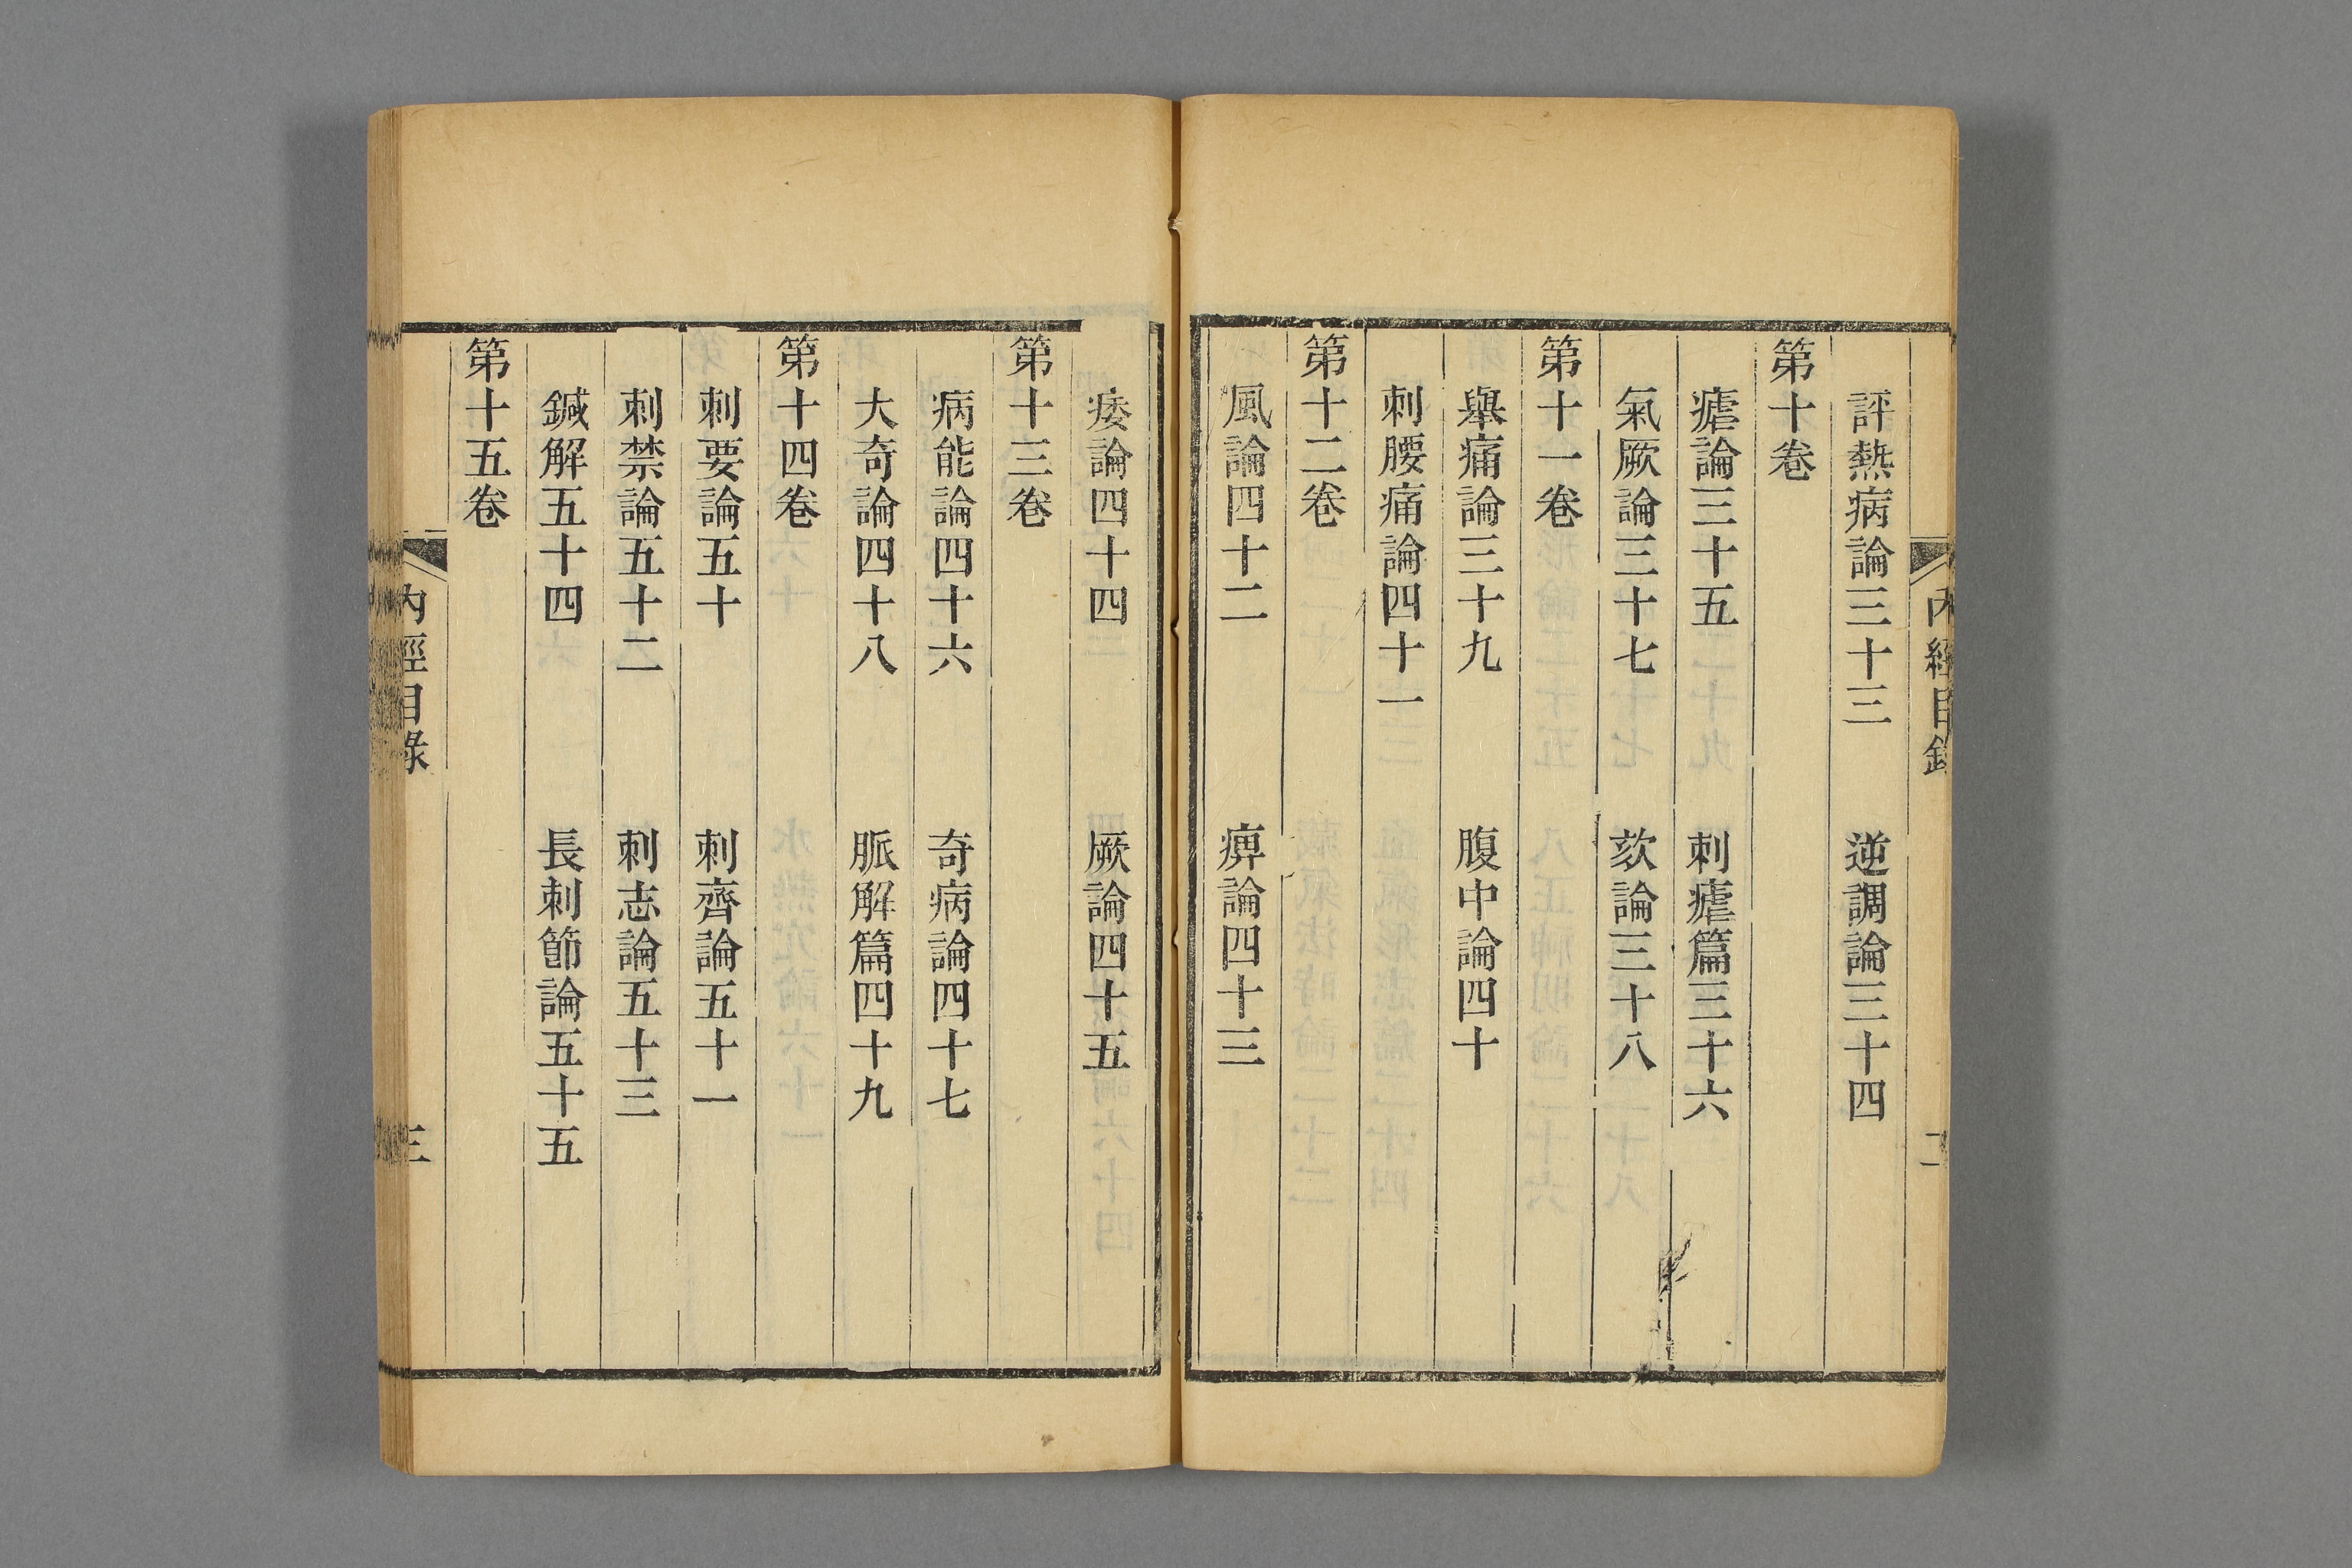 內經目錄
二
評熱病論三十三　逆調論三十四
第十卷
瘧論三十五　刺瘧篇三十六
氣厥論三十七　欬論三十八
第十一卷
舉痛論三十九　腹中論四十
刺腰痛論四十一
第十二卷
風論四十二　痹論四十三
痿論四十四　厥論四十五
第十三卷
病能論四十六　奇病論四十七
大奇論四十八　脈解篇四十九
第十四卷
刺要論五十　刺齊論五十一
刺禁論五十二　刺志論五十三
鍼解五十四　長刺節論五十五
第十五卷
內經目錄
三